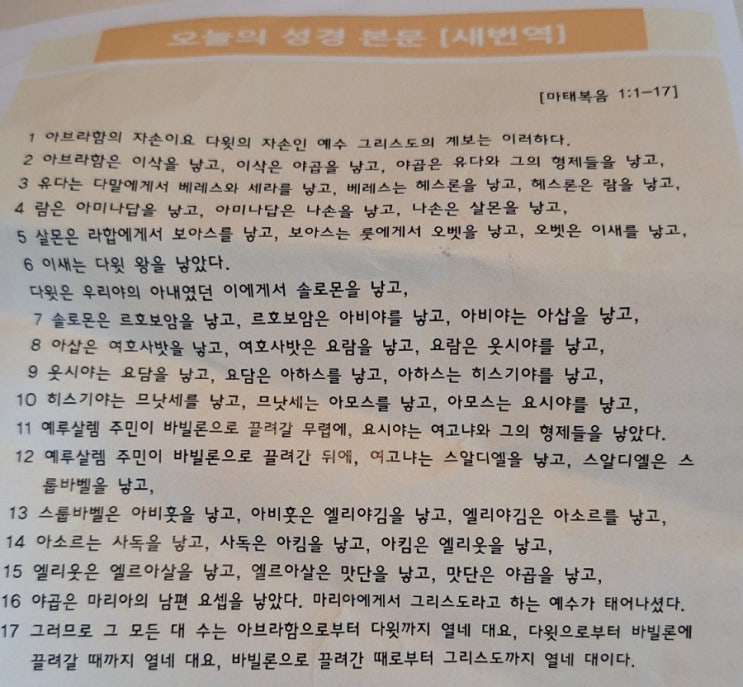 오늘의 성경 본문 [새번역]
[마태복음 1:1-17]
1 아브라함의 자손이요 다윗의 자손인 예수 그리스도의 계보는 이러하다.
2 아브라함은 이삭을 낳고, 이삭은 야곱을 낳고, 야곱은 유다와 그의 형제들을 낳고,
3 유다는 다말에게서 베레스와 세라를 낳고, 베레스는 헤스론을 낳고, 헤스론은 람을 낳고,
4 람은 아미나답을 낳고, 아미나답은 나손을 낳고, 나손은 살몬을 낳고,
5 살몬은 라합에게서 보아스를 낳고, 보아스는 룻에게서 오벳을 낳고, 오벳은 이새를 낳고,
6 이새는 다윗 왕을 낳았다.
다윗은 우리야의 아내였던 이에게서 솔로몬을 낳고,
7 솔로몬은 르호보암을 낳고, 르호보암은 아비야를 낳고, 아비야는 아삽을 낳고,
8 아삽은 여호사밧을 낳고, 여호사밧은 요람을 낳고, 요람은 웃시야를 낳고,
9 웃시야는 요담을 낳고, 요담은 아하스를 낳고, 아하스는 히스기야를 낳고,
10 히스기야는 므낫세를 낳고, 므낫세는 아모스를 낳고, 아모스는 요시야를 낳고,
11 예루살렘 주민이 바빌론으로 끌려갈 무렵에, 요시야는 여고냐와 그의 형제들을 낳았다.
12 예루살렘 주민이 바빌론으로 끌려간 뒤에, 여고냐는 스알디엘을 낳고, 스알디엘은 스
룹바벨을 낳고,
13 스룹바벨은 아비훗을 낳고, 아비훗은 엘리야김을 낳고, 엘리야김은 아소르를 낳고,
14 아소르는 사독을 낳고, 사독은 아킴을 낳고, 아킴은 엘리웃을 낳고,
15 엘리웃은 엘르아살을 낳고, 엘르아살은 맛단을 낳고, 맛단은 야곱을 낳고,
16 야곱은 마리아의 남편 요셉을 낳았다. 마리아에게서 그리스도라고 하는 예수가 태어나셨다.
17 그러므로 그 모든 대 수는 아브라함으로부터 다윗까지 열네 대요, 다윗으로부터 바빌론에
끌려갈 때까지 열네 대요, 바빌론으로 끌려간 때로부터 그리스도까지 열네 대이다.